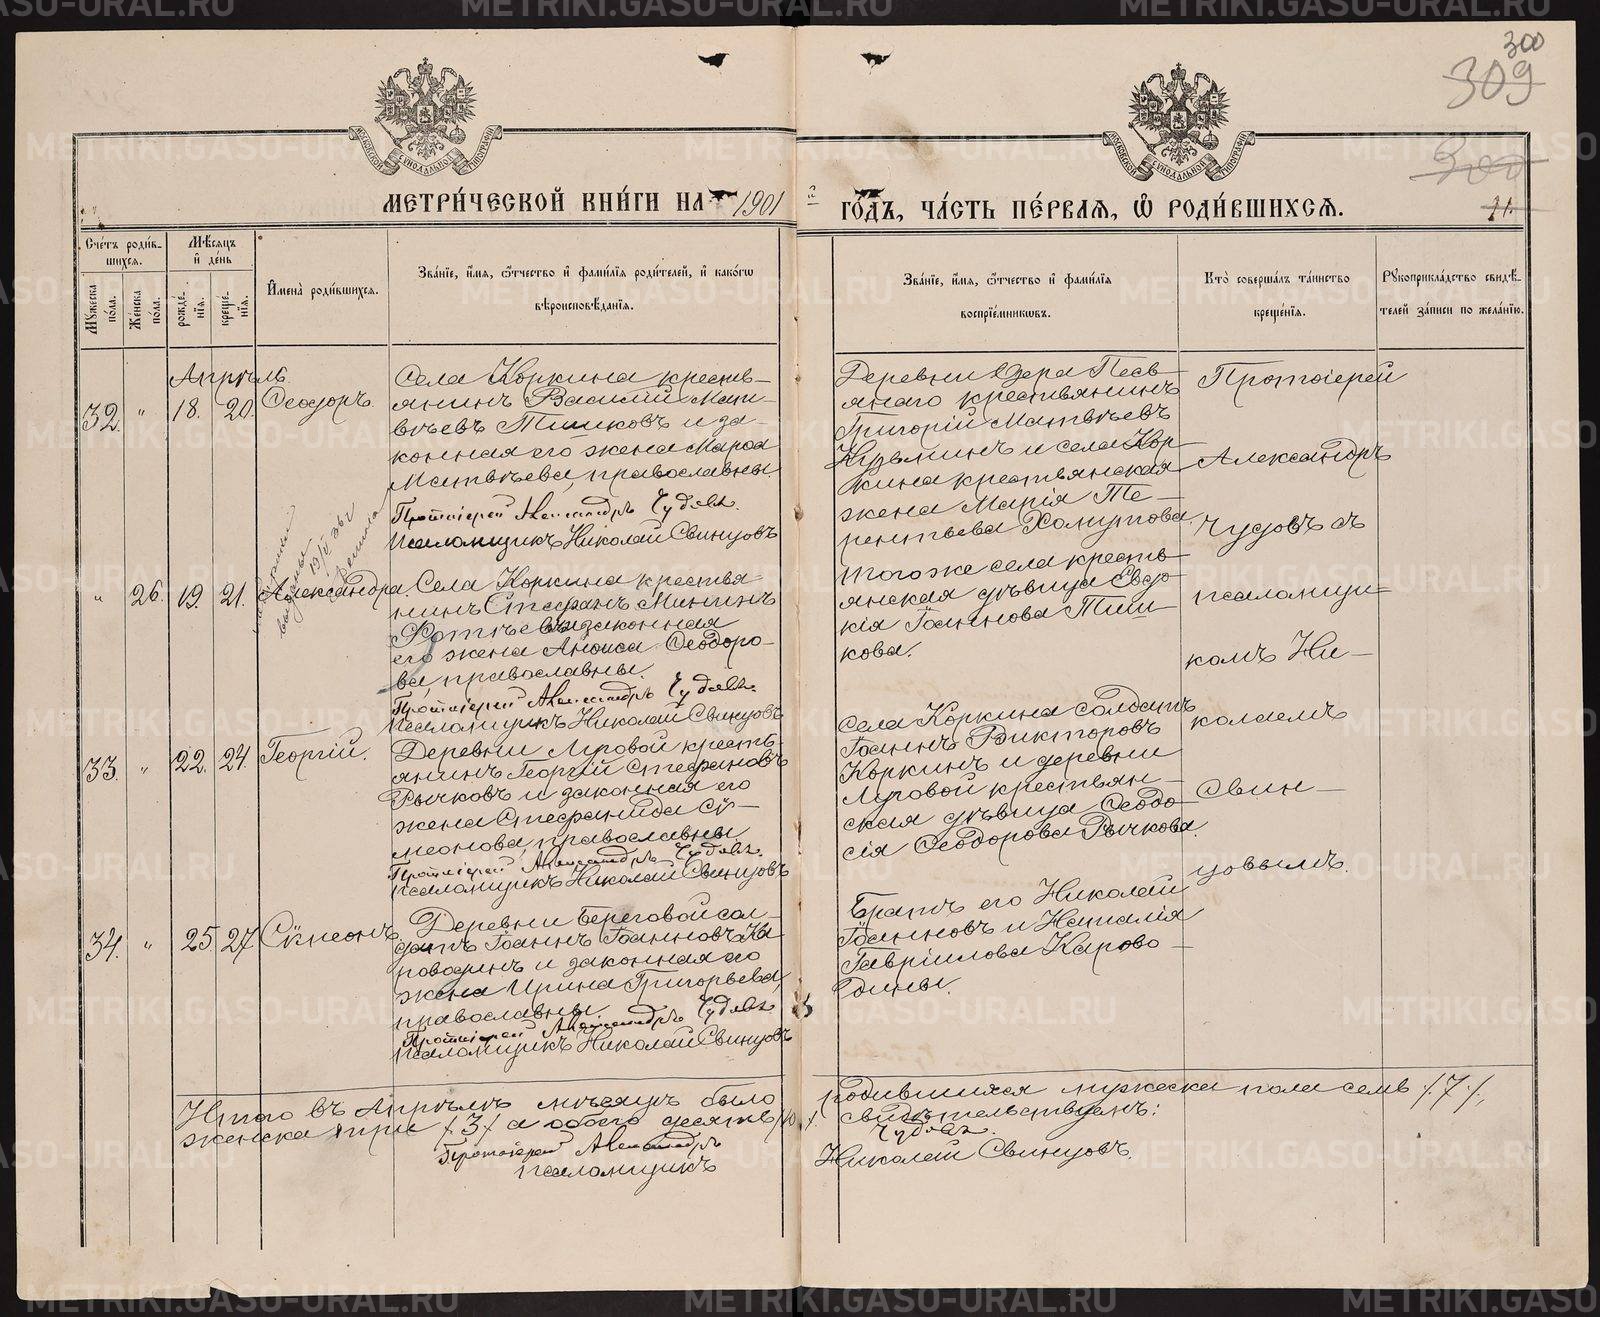 300
309
300
21.
МЕТРИ́ЧЕСКОЙ КНИ́ГИ НА 1901 й ГО́ДЪ, ЧА́СТЬ ПЕ́РВАЯ, Ѡ РОДИ́ВШИХСЯ.
Сче́тъ роди́вшихся.
Му́жеска по́ла.
Же́нска по́ла.
Мѣ́сяцъ и де́нь
рожде́нїя.
креще́нїя.
И҆мена̀ роди́вшихся.
Зва́нїе, и҆́мя, ѻ҆́тчество и҆ фами́лїя роди́телей, и҆ како́гѡ
вѣроисповѣ́данїя.
Зва́нїе, и҆́мя, ѻ҆́тчество и҆ фами́лїя
воспрїе́мникѡвъ.
Кто̀ соверша́лъ та́инство
креще́нїя.
Рꙋкоприкла́дство свидѣ́-
телей за́писи по жела́нїю.
Апрѣль
32. " 18. 20. Ѳеодоръ.
Села Коркина кресть-
янинъ Василий Мат-
вѣевъ Тишковъ и за-
конная его жена Марѳа
Матвѣева, православны.
Протоіерей Александръ Чудовъ.
Псаломщикъ Николай Свинцовъ
Деревни Озера Песь-
янаго крестьянинъ
Григорій Матвѣевъ
Кузьминъ и села Кор-
кина крестьянская
жена Марія Те-
рентьева Хомутова.
" 26. 19. 21. Александра.
Села Коркина крестья
нинъ Стефанъ Мининъ
Фотѣевъ и законная
его жена Анѳиса Ѳеодоро-
ва, православны.
Протоіерей Александръ Чудовъ.
Псаломщикъ Николай Свинцовъ
Тогоже села кресть-
янская дѣвица Евдо-
кія Іоаннова Тиш-
кова.
33. " 22. 24. Георгій.
Деревни Луговой кресть-
янинъ Георгій Стефановъ
Рычковъ и законная его
жена Стефанида Сѵ-
меонова, православны
Протоіерей Александръ Чудовъ.
Псаломщикъ Николай Свинцовъ
Села Коркина солдатъ
Іоаннъ Викторовъ
Коркинъ и деревни
Луговой крестьян-
ская дѣвица Ѳеодо-
сія Ѳеодорова Рычкова.
34. " 25. 27. Сѵмеонъ.
Деревни Береговой сол-
датъ Іоаннъ Іоанновъ Ка-
роводинъ и законная его
жена Ирина Григорьева,
православны.
Протоіерей Александръ Чудовъ
Псаломщикъ Николай Свинцовъ
Братъ его Николай
Іоанновъ и Наталія
Гавріилова Карово-
дины.
Протоіерей
Александръ
Чудовъ съ
псаломщи-
комъ Ни-
колаемъ
Свин-
цовымъ.
Итого въ Апрѣлѣ мѣсяцѣ было родившихся мужеска пола семь /7/,
женска три /3/ а обоего десять /10/. Свидѣтельствуемъ:
Протоіерей Александръ Чудовъ.
псаломщикъ Николай Свинцовъ.
METRIKI.GASO-URAL.RU